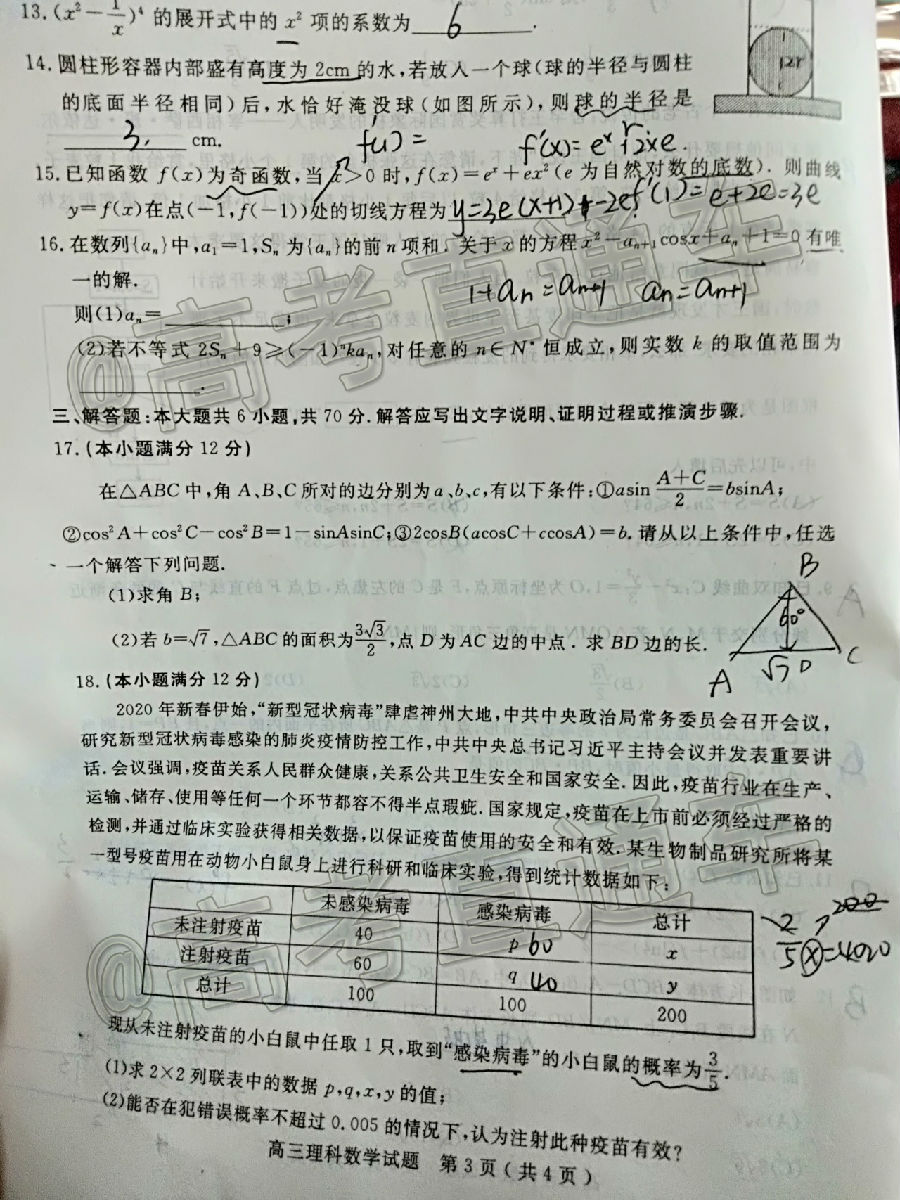 13.(x²-1/x)⁴的展开式中的 x² 项的系数为 6 .
14.圆柱形容器内部盛有高度为2cm的水,若放入一个球(球的半径与圆柱
的底面半径相同)后,水恰好淹没球(如图所示),则球的半径是
3, cm.
f'(1)= f'(x)=eˣ+2xe
15.已知函数 f(x)为奇函数,当 x>0时,f(x)=eˣ+ex²(e为自然对数的底数). 则曲线
y=f(x)在点(-1,f(-1))处的切线方程为 y=3e(x+1)+-2e f'(1)=e+2e=3e
16.在数列{aₙ}中,a₁=1,Sₙ为{aₙ}的前n项和. 关于x的方程x²-aₙ₊₁cosx+aₙ+1=0有唯
一的解.
1+aₙ=aₙ₊₁ aₙ=aₙ₊₁
则(1)aₙ= ;
(2)若不等式 2Sₙ+9≥(-1)ⁿkaₙ,对任意的 n∈N*恒成立,则实数 k 的取值范围为
.
三、解答题:本大题共6小题,共70分.解答应写出文字说明、证明过程或推演步骤.
17.(本小题满分12分)
在△ABC中,角A、B、C所对的边分别为a、b、c,有以下条件:①asin (A+C)/2=bsinA;
②cos²A+cos²C-cos²B=1-sinAsinC;③2cosB(acosC+ccosA)=b. 请从以上条件中,任选
一个解答下列问题.
(1)求角B;
(2)若b=√7,△ABC的面积为3√3/2,点D为AC边的中点. 求BD边的长.
B
60°
A √7 D C
18.(本小题满分12分)
2020年新春伊始,“新型冠状病毒”肆虐神州大地,中共中央政治局常务委员会召开会议,
研究新型冠状病毒感染的肺炎疫情防控工作,中共中央总书记习近平主持会议并发表重要讲
话.会议强调,疫苗关系人民群众健康,关系公共卫生安全和国家安全.因此,疫苗行业在生产、
运输、储存、使用等任何一个环节都容不得半点瑕疵.国家规定,疫苗在上市前必须经过严格的
检测,并通过临床实验获得相关数据,以保证疫苗使用的安全和有效.某生物制品研究所将某
一型号疫苗用在动物小白鼠身上进行科研和临床实验,得到统计数据如下:
未感染病毒 感染病毒 总计
未注射疫苗 40 p 60 x
注射疫苗 60 q 40 y
总计 100 100 200
现从未注射疫苗的小白鼠中任取1只,取到“感染病毒”的小白鼠的概率为3/5.
(1)求2×2列联表中的数据p,q,x,y的值;
(2)能否在犯错误概率不超过0.005的情况下,认为注射此种疫苗有效?
高三理科数学试题 第3页(共4页)
@高考直通车
@高考直通车